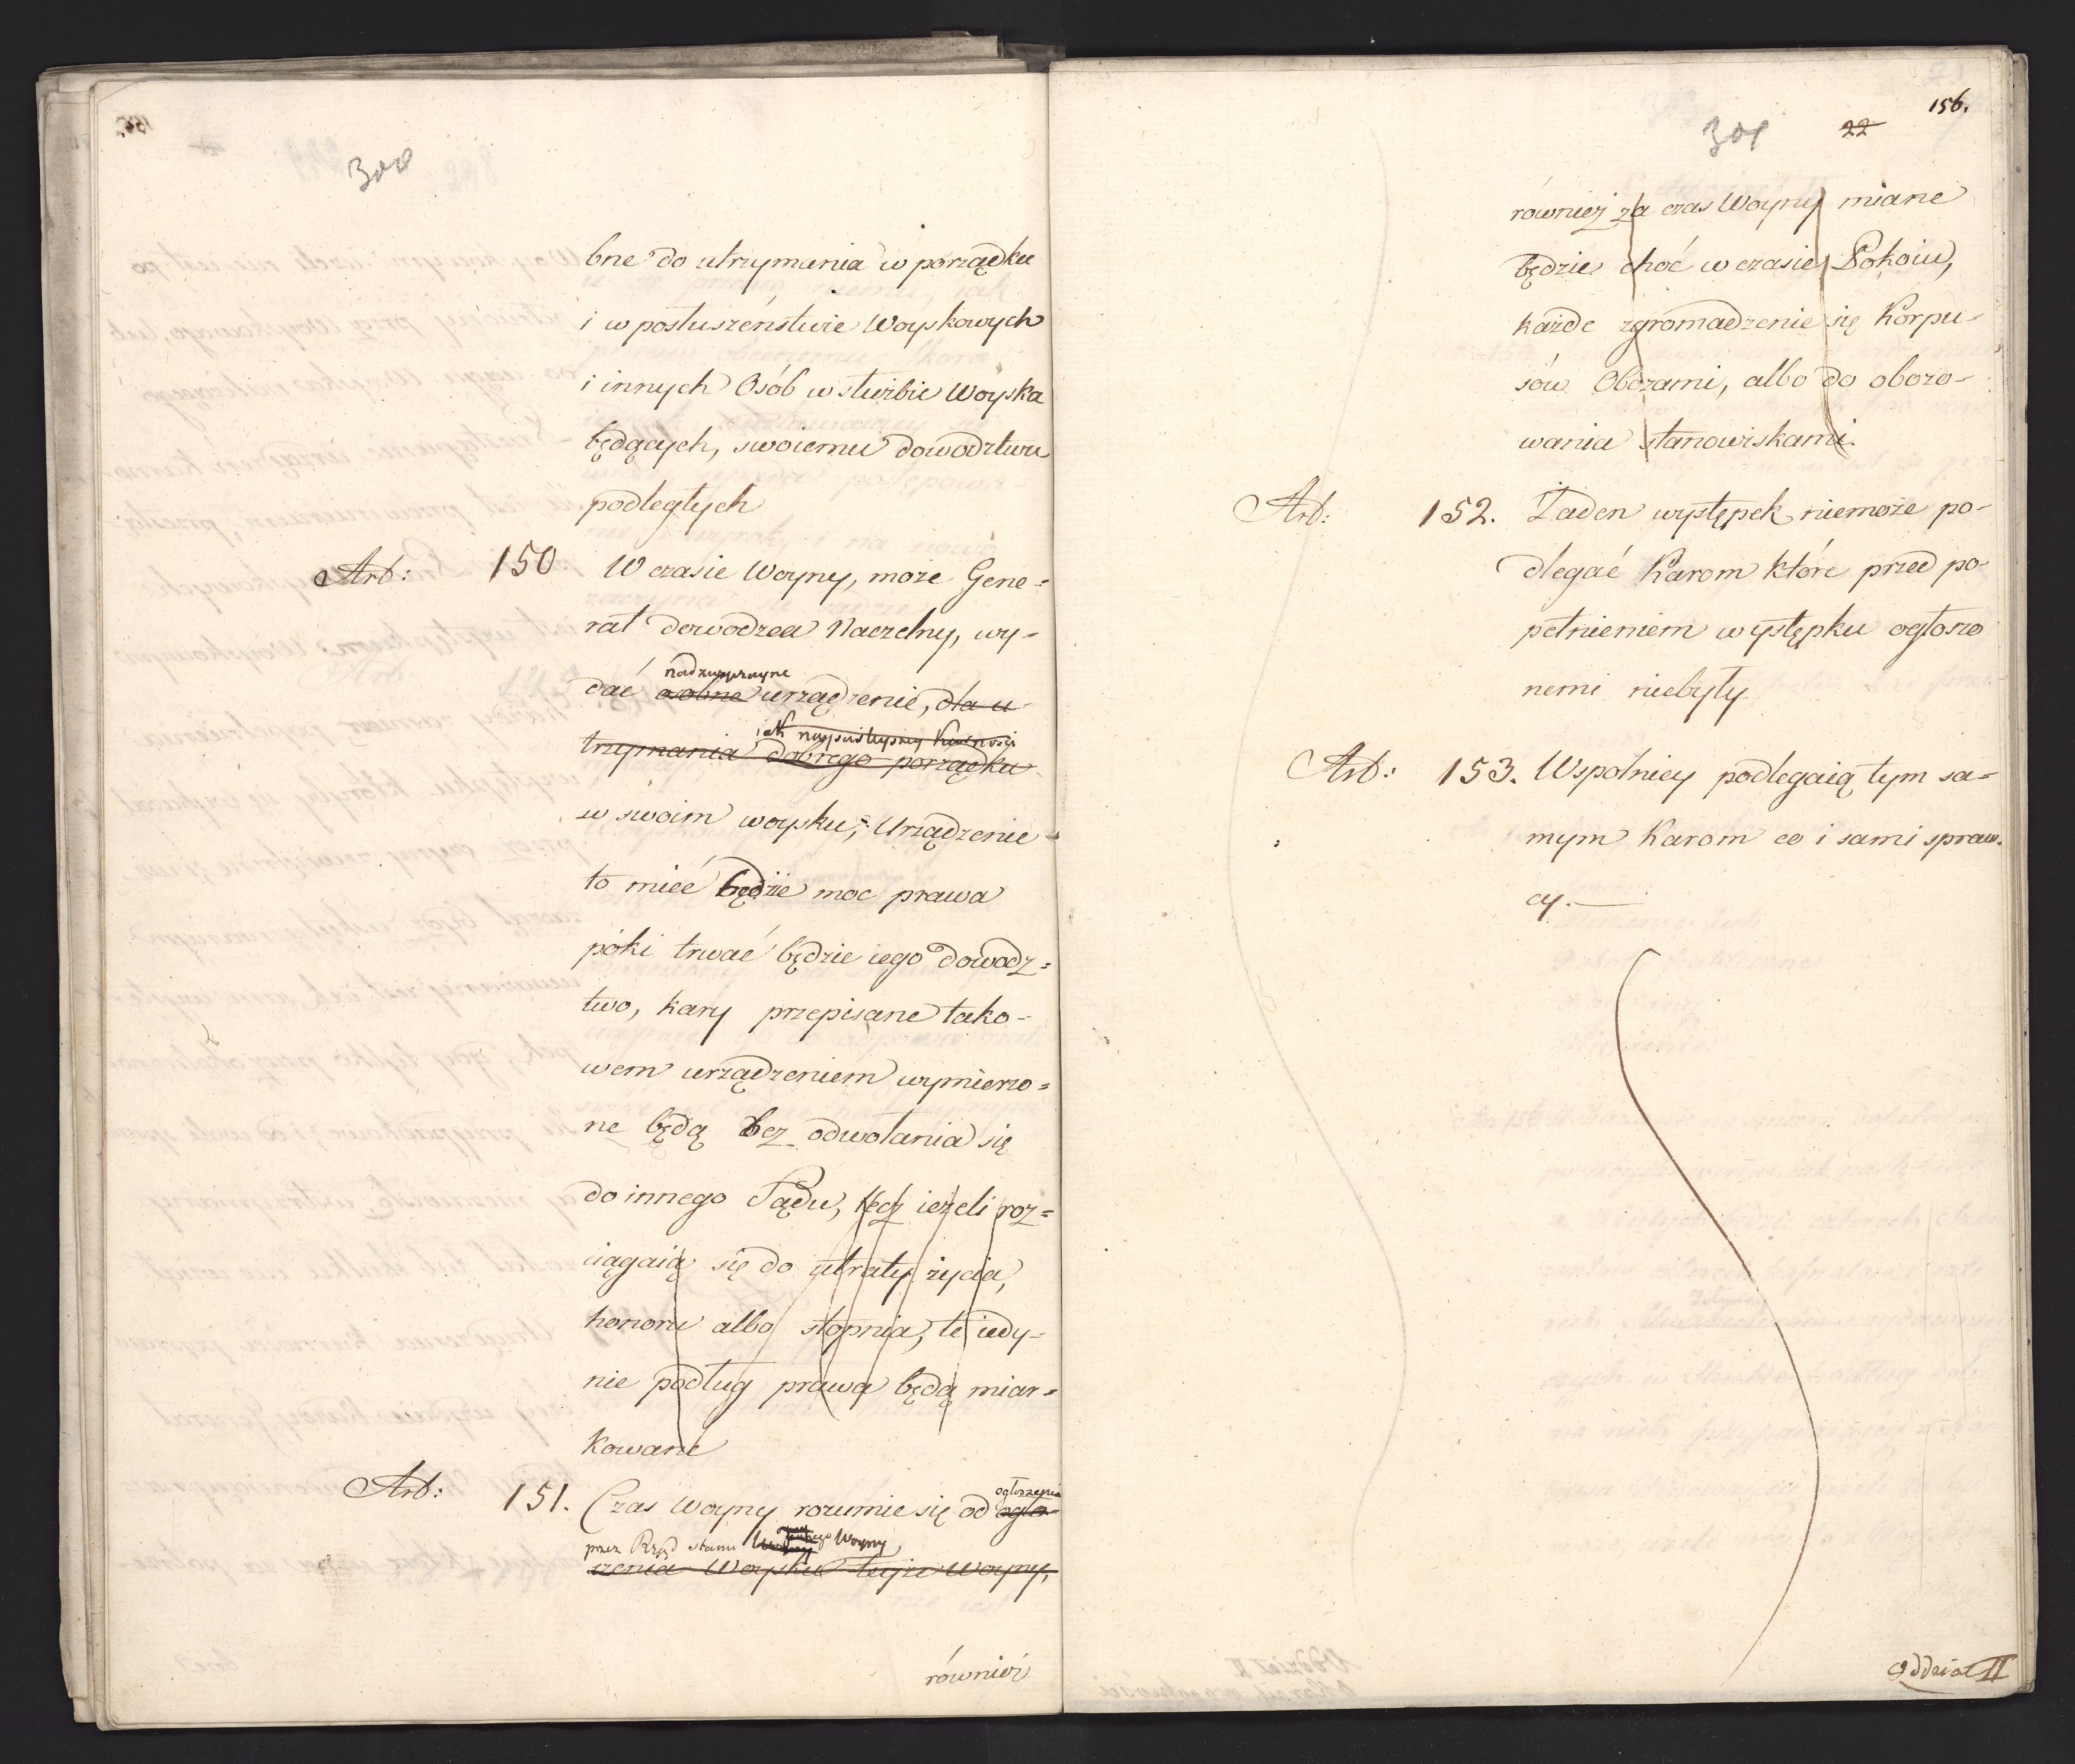 300
bne do utrzymania w porządku
i w posłuszeństwie Woyskowych
i innych Osób w służbie Woyska
będących, swoiemu dowodztwu
podległych
Art: 150 W czasie Woyny, może Gene=
rał dowodzca Naczelny, wy-
nadzwyczayne
dać osobne urządzenie, dla u-
iak nayściśleyszey Karności
trzymania dobrego porządku
w swoim woysku, Urządzenie
to mieć będzie moc prawa
póki trwać będzie iego dowodz=
two, kary przepisane tako-
wem urządzeniem wymierzo=
ne będą bez odwołania się
do innego Sądu, lecz ieżeli roz=
ciągaią się do utraty życia,
honoru albo stopnia, te iedy-
nie podług prawa będą miar=
kowane
ogłoszenia
Art: 151. Czas Woyny rozumie się od ogło-
przez Rząd stanu Woyny,
szenia Woysku teyże Woyny,
równiéż
156.
301 22
równiéż za czas Woyny miane
będzie choć w czasie Pokoiu,
każde zgromadzenie się Korpu-
sów Obozami, albo do obozo-
wania stanowiskami.
Art: 152. Żaden występek niemoże po-
dlegać Karom które przed po-
pełnieniem występku ogłoszo
nemi niebyły
Art: 153. Wspólnicy podlegaią tym sa=
mym Karom co i sami spraw.
cy.—
Oddział II